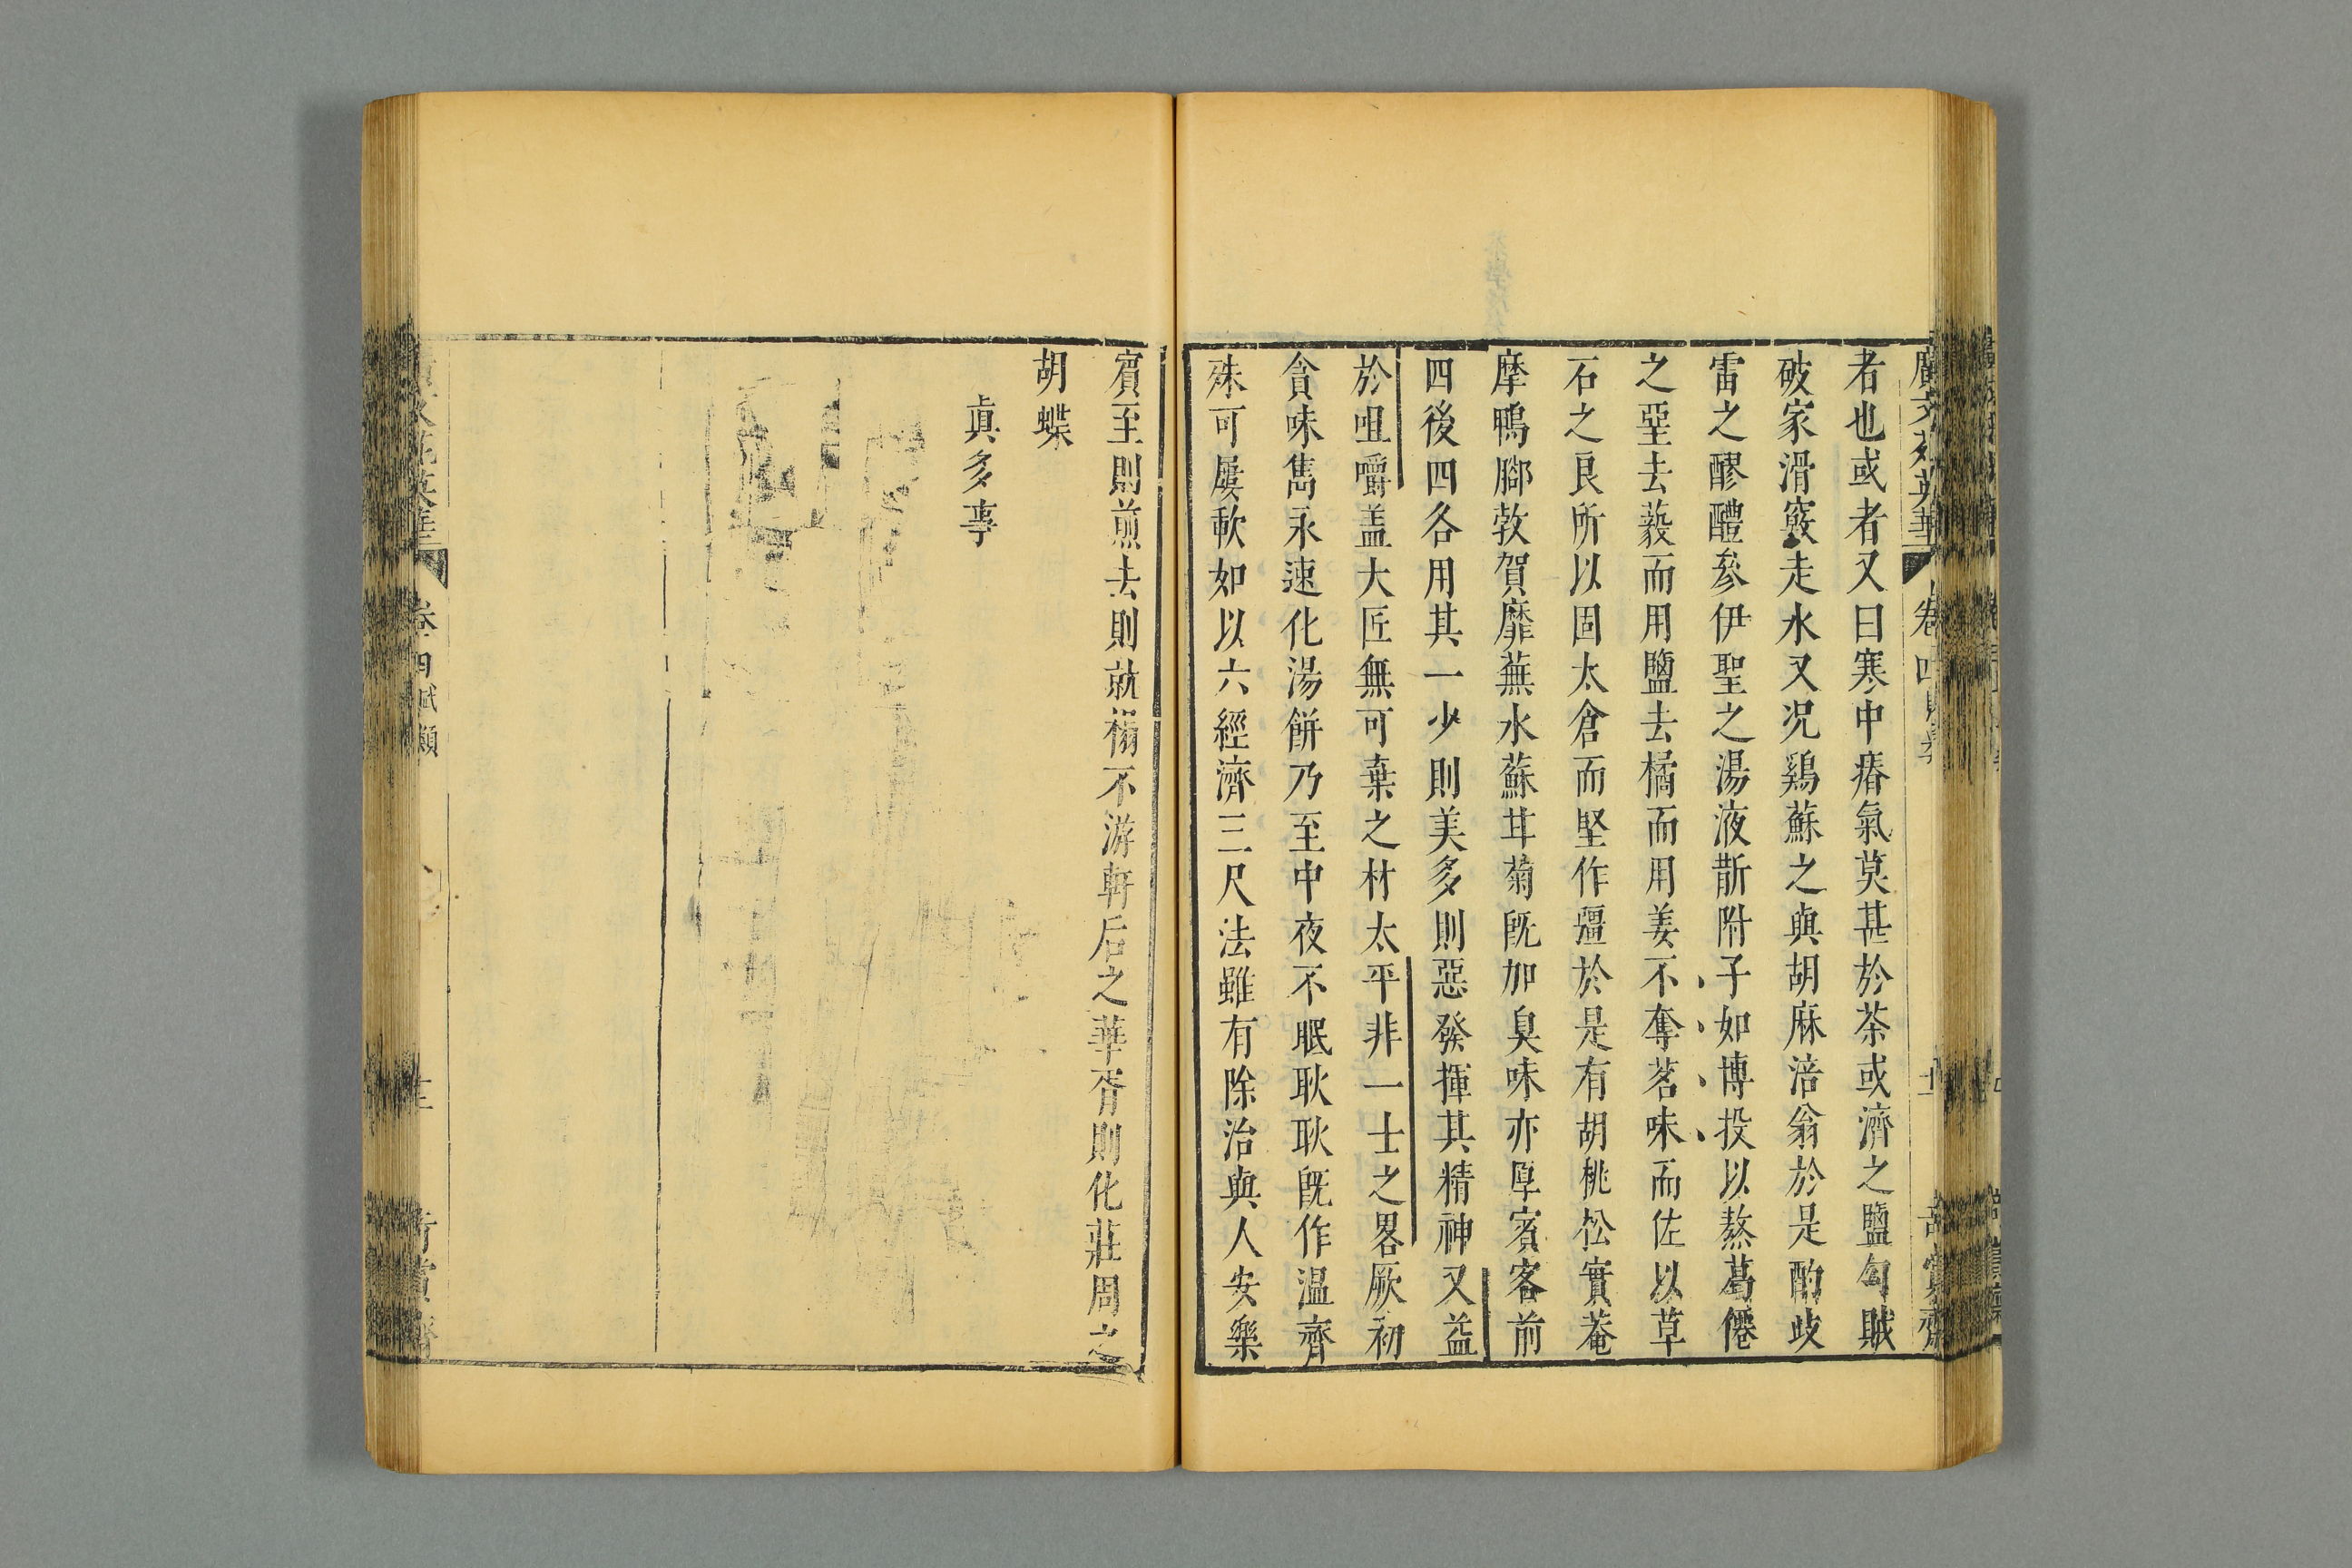 廣文苑英華 卷四 賦
者也或者又曰寒中瘠氣莫甚於茶或濟之鹽勾賊
破家滑竅走水又况鷄蘇之與胡麻涪翁於是酌歧
雷之醪醴參伊聖之湯液斮附子如博投以熬葛僊
之堊去藙而用鹽去橘而用姜不奪茗味而佐以草
石之良所以固太倉而堅作疆於是有胡桃松實菴
摩鴨腳敦賀靡蕪水蘇甘菊既加臭味亦厚賓客前
四後四各用其一少則美多則惡發揮其精神又益
於咀嚼盖大匠無可棄之材太平非一士之畧厥初
貪味雋永速化湯餅乃至中夜不眠耿耿既作温齊
殊可屢歃如以六經濟三尺法雖有除治與人安樂
賓至則煎去則就榻不游軒后之華胥則化莊周之
胡蝶
眞多事
卷四 賦類